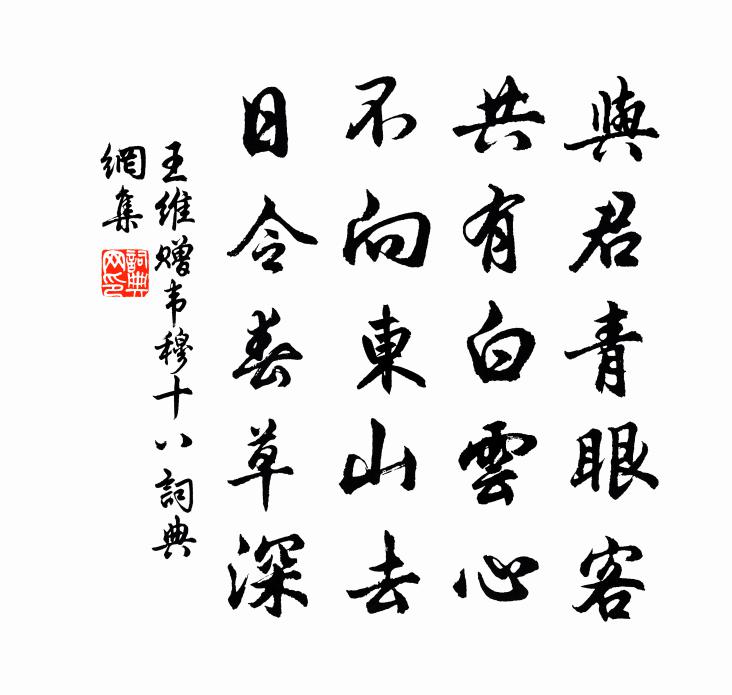 與君青眼客
共有白雲心
不向東山去
日令春草深
王維贈韦穆十八詞典
網集
詞典网印